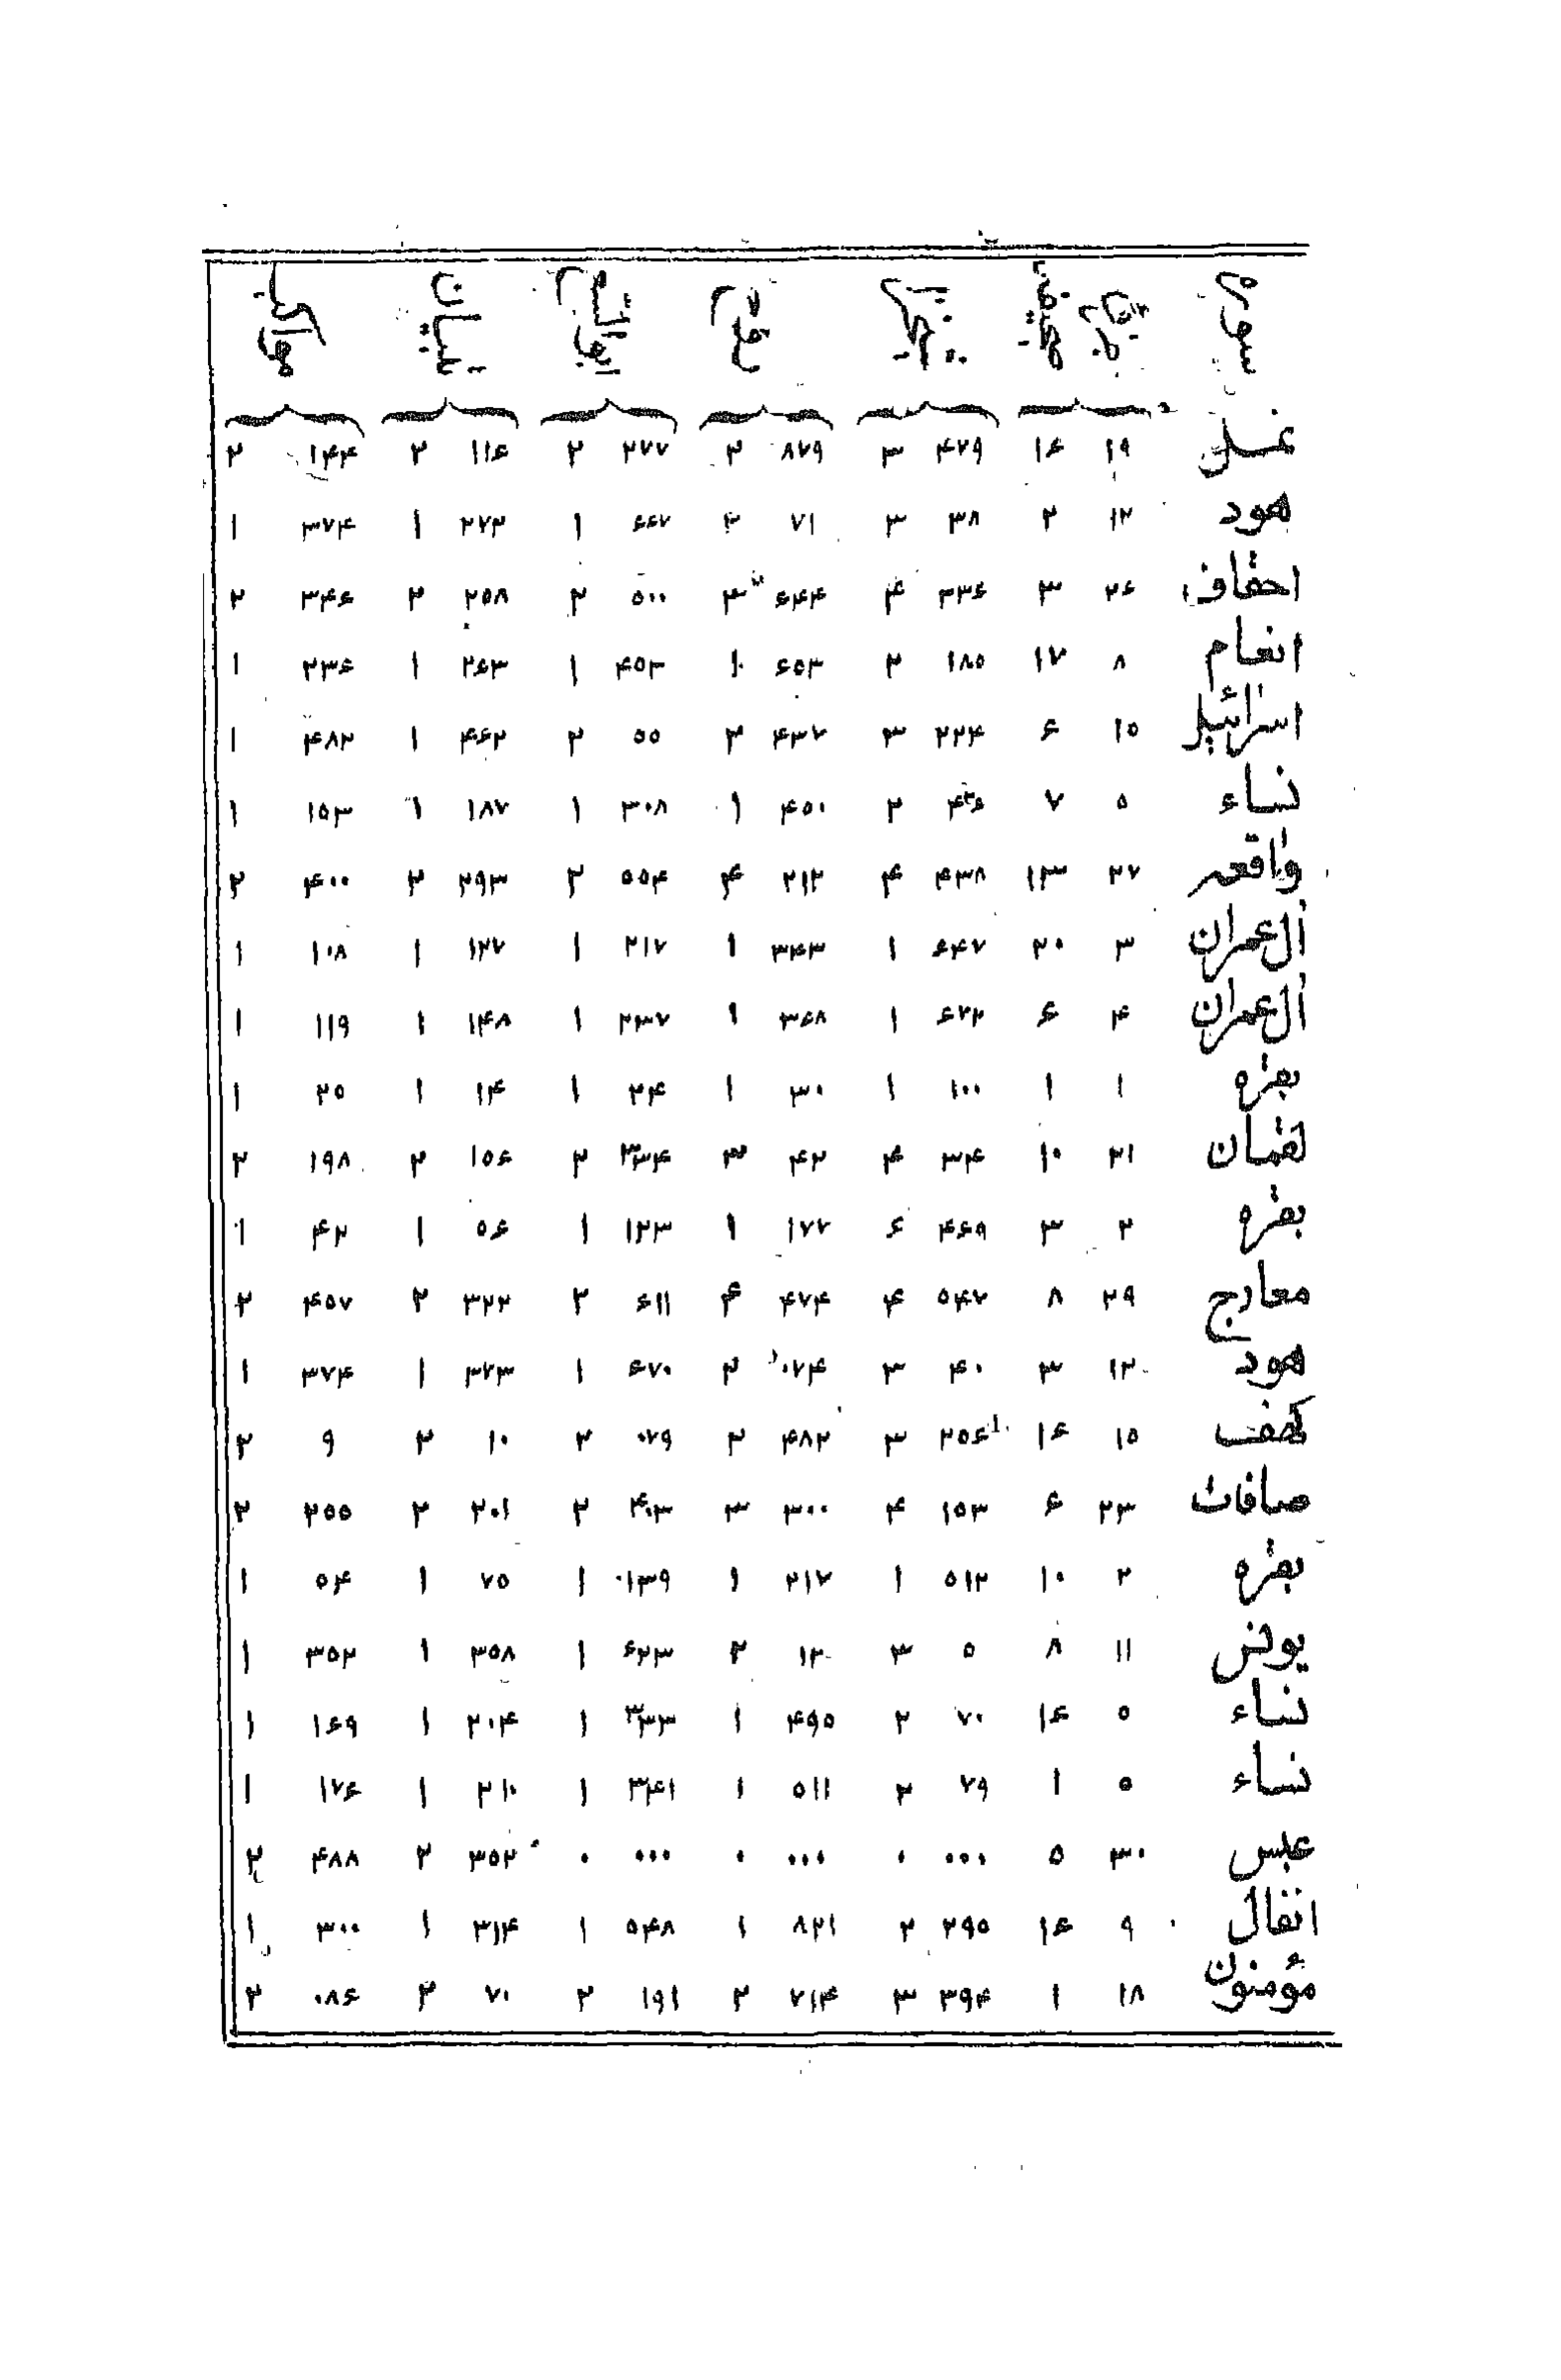 نمل ۱۹ ۱۶ ۴۷۹ ۳ ۸۷۹ ۲ ۲۷۷ ۲ ۱۱۶ ۲ ۱۴۴ ۲
هود ۱۲ ۲ ۳۸ ۳ ۷۱ ۲ ۶۶۷ ۱ ۲۷۲ ۱ ۳۷۴ ۱
احقاف ۲۶ ۳ ۳۳۶ ۴ ۶۴۴ ۳ ۵۰۰ ۲ ۲۵۸ ۲ ۳۴۶ ۲
انعام ۸ ۱۷ ۱۸۵ ۲ ۶۵۳ ۱ ۴۵۳ ۱ ۲۶۳ ۱ ۲۳۶ ۱
اسرائیل ۱۵ ۶ ۲۲۴ ۳ ۴۳۷ ۲ ۵۵ ۲ ۴۶۲ ۱ ۴۸۲ ۱
نساء ۵ ۷ ۲ ۴۵۰ ۱ ۳۰۸ ۱ ۱۸۷ ۱ ۱۵۳ ۱
واقعه ۲۷ ۱۳ ۴۳۸ ۴ ۲۱۲ ۴ ۵۵۴ ۲ ۲۹۳ ۲ ۴۰۰ ۲
آل عمران ۳ ۲۰ ۶۴۷ ۱ ۳۴۳ ۱ ۲۱۷ ۱ ۱۲۷ ۱ ۱۰۸ ۱
آل عمران ۴ ۶ ۶۷۲ ۱ ۳۶۸ ۱ ۲۳۷ ۱ ۱۴۸ ۱ ۱۱۹ ۱
بقره ۱ ۱ ۱۰۰ ۱ ۳۰ ۱ ۲۴ ۱ ۱۴ ۱ ۲۵ ۱
لقمان ۲۱ ۱۰ ۳۴ ۴ ۴۲ ۳ ۳۳۴ ۲ ۱۵۶ ۲ ۱۹۸ ۲
بقره ۲ ۳ ۴۶۹ ۶ ۱۷۷ ۱ ۱۲۳ ۱ ۵۶ ۱ ۴۲ ۱
معارج ۲۹ ۸ ۵۴۷ ۴ ۴۷۴ ۴ ۶۱۱ ۲ ۳۲۲ ۲ ۴۵۷ ۲
هود ۱۲ ۳ ۴۰ ۳ ۰۷۴ ۲ ۶۷۰ ۱ ۳۷۳ ۱ ۳۷۴ ۱
کهف ۱۵ ۱۶ ۲۵۶ ۳ ۴۸۲ ۲ ۰۷۹ ۲ ۱۰ ۲ ۹ ۲
صافات ۲۳ ۶ ۱۵۳ ۴ ۳۰۰ ۳ ۴۰۳ ۲ ۲۰۱ ۲ ۲۵۵ ۲
بقره ۲ ۱۰ ۵۱۲ ۱ ۲۱۷ ۱ ۱۳۹ ۱ ۷۵ ۱ ۵۴ ۱
یونس ۱۱ ۸ ۵ ۳ ۱۲ ۲ ۶۲۳ ۱ ۳۵۸ ۱ ۳۵۲ ۱
نساء ۵ ۱۶ ۷۰ ۲ ۴۹۵ ۱ ۳۳۳ ۱ ۲۰۴ ۱ ۱۶۹ ۱
نساء ۵ ۱ ۷۹ ۲ ۵۱۱ ۱ ۳۴۱ ۱ ۲۱۰ ۱ ۱۷۶ ۱
عبس ۳۰ ۵ ۰۰۰ ۰ ۰۰۰ ۰ ۰۰۰ ۰ ۳۵۲ ۲ ۴۸۸ ۲
انفال ۹ ۱۶ ۲۹۵ ۲ ۸۲۱ ۱ ۵۴۸ ۱ ۳۱۴ ۱ ۳۰۰ ۱
مؤمنون ۱۸ ۱ ۳۹۴ ۳ ۷۱۴ ۲ ۱۹۱ ۲ ۷۰ ۲ ۰۸۶ ۲